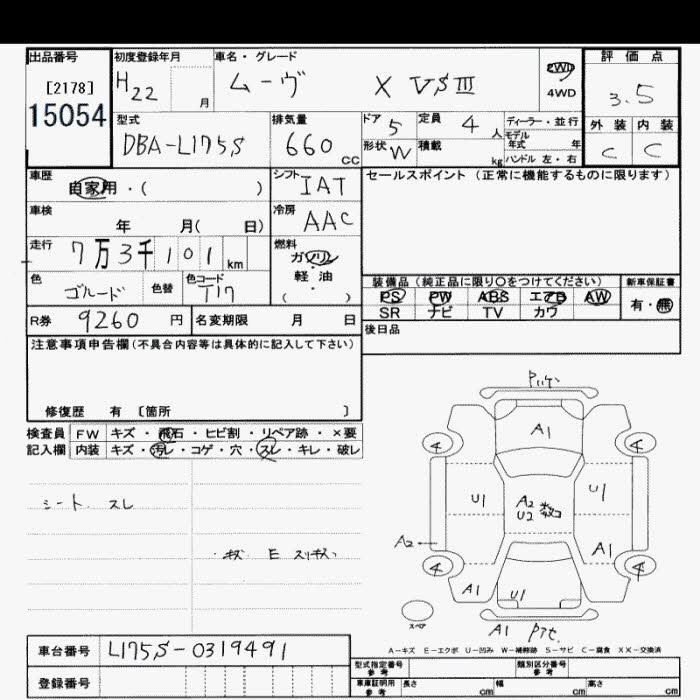 出品番号
[2178]
15054
初度登録年月
H22 月
車名・グレード
ムーヴ X VSIII
2WD
4WD
評価点
3.5
外装 内装
C C
型式
DBA-L175S
排気量
660 CC
ドア 5
定員 4 人
形状 W
積載 kg
ディーラー・並行
モデル年式 年
ハンドル 左・右
車歴
自家用・( )
シフト IAT
セールスポイント(正常に機能するものに限ります)
車検
年 月( 日)
冷房 AAC
走行 7万3千101 km
燃料
ガソリン
軽油
( )
色 ゴルード
色替
色コード T17
装備品(純正品に限り○をつけてください)
新車保証書
PS PW ABS エアB AW
有・無
SR ナビ TV カワ
R券 9260 円
名変期限 月 日
後日品
注意事項申告欄(不具合内容等は具体的に記入して下さい)
修復歴 有 [箇所 ]
検査員 FW キズ・飛石・ヒビ割・リペア跡・×要
記入欄 内装 キズ・汚レ・コゲ・穴・スレ・キレ・破レ
シート スレ
A1
4 4
U1
A2
U2
U1
A2
A1
4 4
A1
U1
スペア
A1
A-キズ E-エクボ U-凹み W-補修跡 S-サビ C-腐食 XX-交換済
車台番号 L175S-0319491
登録番号
型式指定番号
参考
類別区分番号
参考
車庫証明用
参考
長さ cm 幅 cm 高さ cm